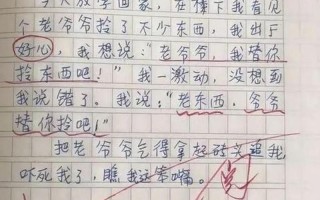 今天放学回家,在楼下我看见
个老爷爷拎了不少东西,我出于
好心,我想说:"老爷爷,我替你
拎东西吧!"我一激动,没想到
我说错了。我说:"老东西,爷爷
替你拎吧!"
把老爷爷气得拿起砖头追我
吓死我了,瞧我这笨嘴。